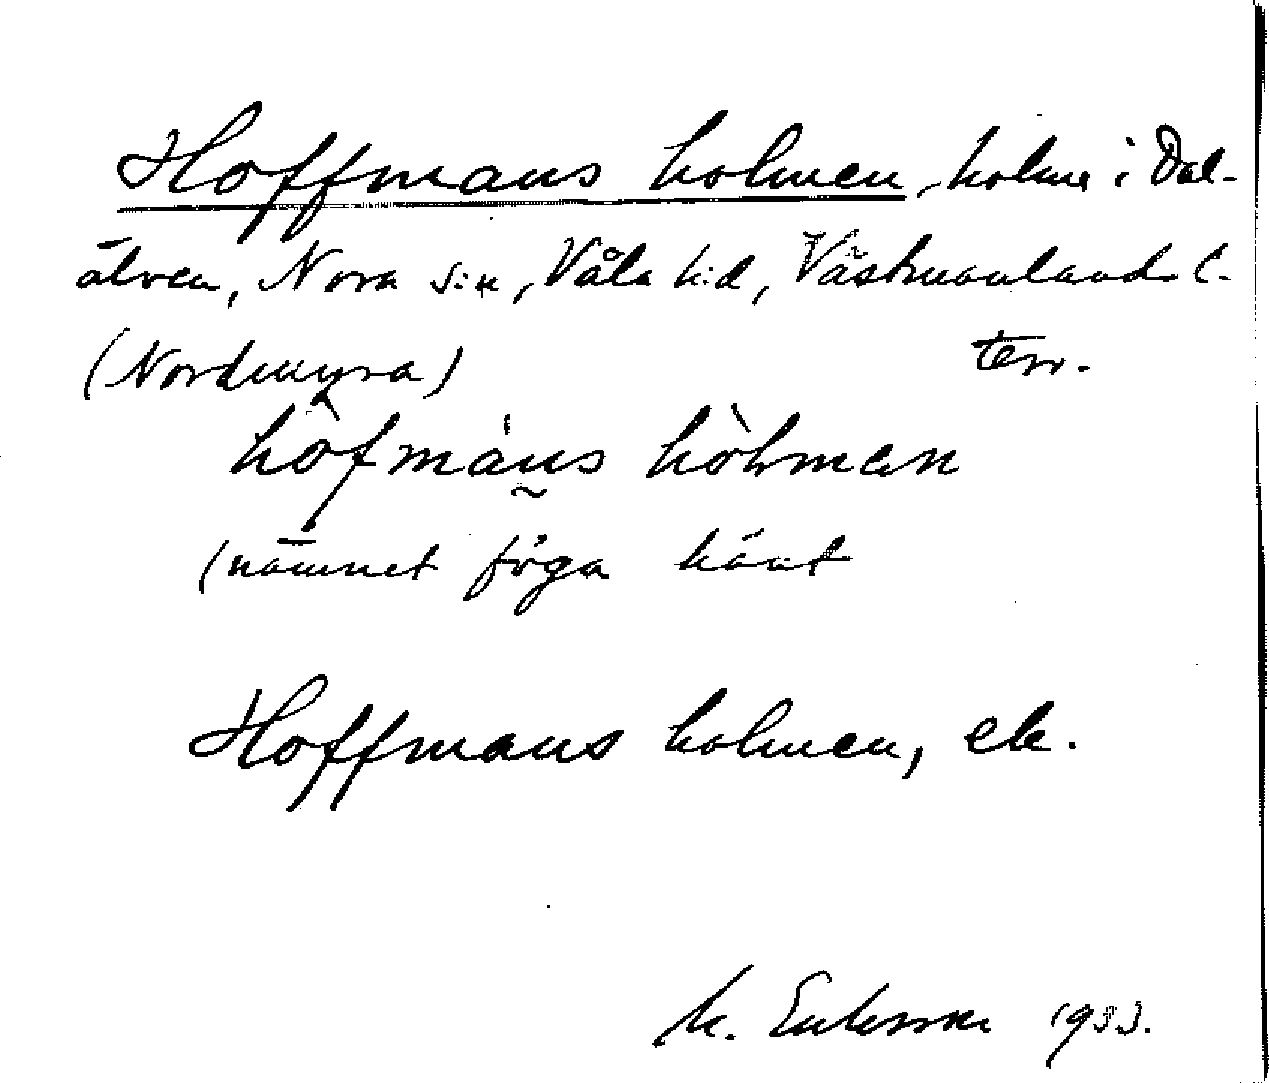 Hoffmans holmen, holme i Dal-
älven, Nora s:n, Våla h:d, Västmanlands l.
(Nordmyra) terr.
hòfmàns hòlmen
(namnet föga känt
Hoffmans holmen, ek.
M. Eriksson 1933.